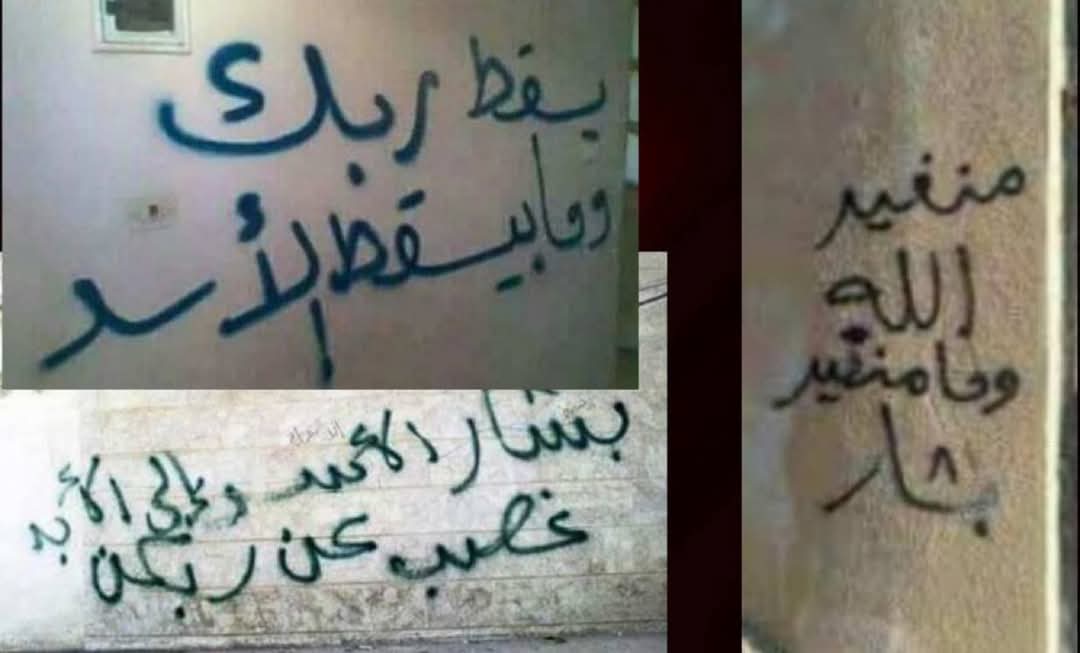 يسقط ربك
وما بيسقط الأسد
بشار الأسد وغالي الأبد
غصب عن ربكن
منغير
الله
وما منغير
بشار